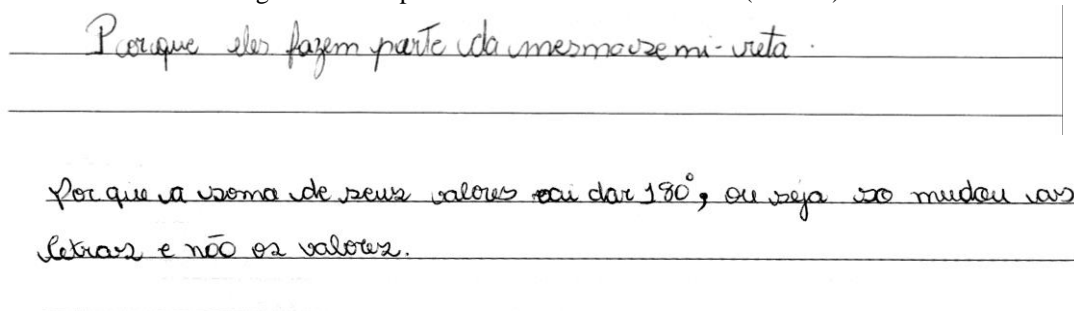 Porque eles fazem parte da mesma semi-reta.
Por que a soma de seus valores vai dar 180°, ou seja so mudou as
letras e não os valores.